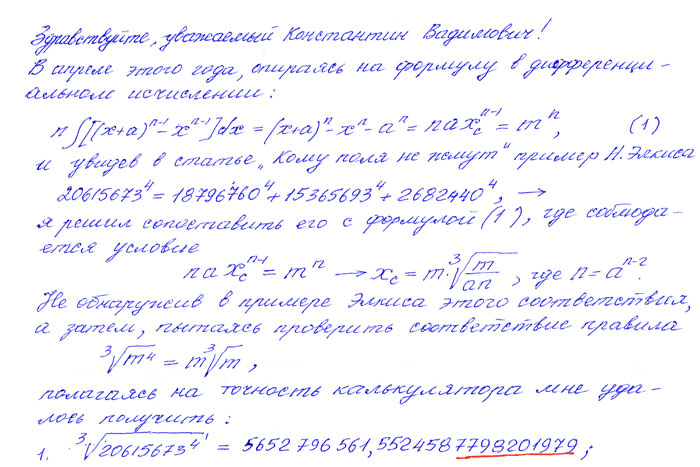 Здравствуйте, уважаемый Константин Вадимович!
В апреле этого года, опираясь на формулу в дифференци-
альном исчислении:
n∫[(x+a)^{n-1} - x^{n-1}]dx = (x+a)^n - x^n - a^n = nax_c^{n-1} = m^n, (1)
и увидев в статье „Кому поля не жмут" пример Н. Элкиса
20615673^4 = 18796760^4 + 15365693^4 + 2682440^4, →
я решил сопоставить его с формулой (1), где соблюда-
ется условие
nax_c^{n-1} = m^n → x_c = m·∛(m/an), где n=a^{n-2}.
Не обнаружив в примере Элкиса этого соответствия,
а затем, пытаясь проверить соответствие правила
∛m^4 = m∛m,
полагаясь на точность калькулятора мне уда-
лось получить:
1. ∛20615673^4 = 5652796561,5524587798201979;